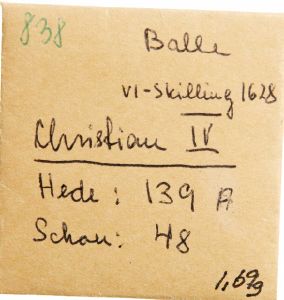 838
Balle
VI-Skilling 1628
Christian IV
Hede: 139 A
Schou: 48
1,69 g